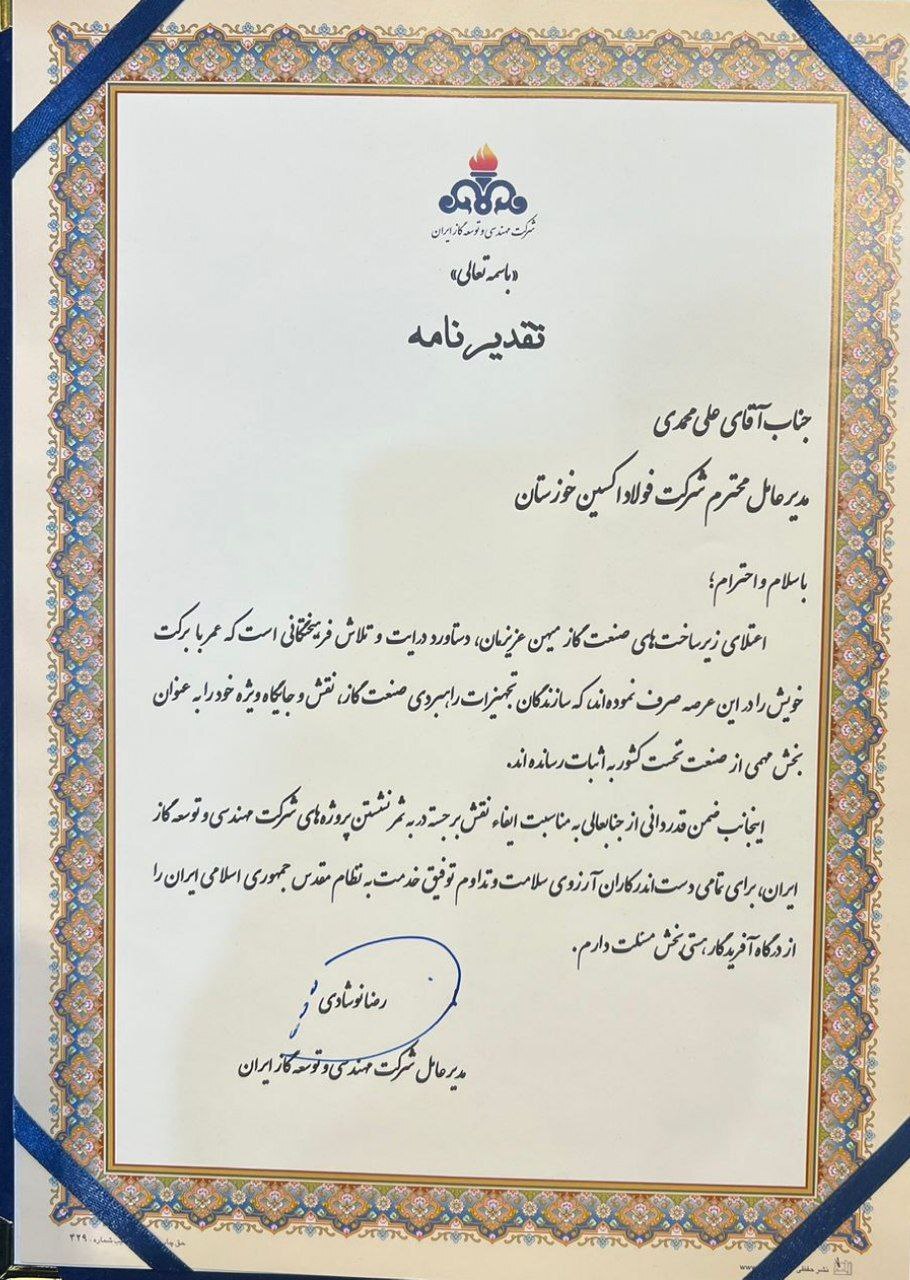 شرکت مهندسی و توسعه گاز ایران
«باسمه تعالی»
تقدیرنامه
جناب آقای علی محمدی
مدیرعامل محترم شرکت فولاد اکسین خوزستان
باسلام و احترام؛
اعتلای زیرساخت‌های صنعت گاز میهن عزیزمان، دستاورد درایت و تلاش فرهیختگانی است که عمر با برکت
خویش را در این عرصه صرف نموده‌اند، که سازندگان تجهیزات راهبردی صنعت گاز، نقش و جایگاه ویژه خود را به عنوان
بخش مهمی از صنعت نخست کشور به اثبات رسانده اند.
اینجانب ضمن قدردانی از جنابعالی به مناسبت ایفاء نقش برجسته در به ثمر نشستن پروژه های شرکت مهندسی و توسعه گاز
ایران، برای تمامی دست اندرکاران آرزوی سلامت و تداوم توفیق خدمت به نظام مقدس جمهوری اسلامی ایران را
از درگاه آفریدگار هستی بخش مسئلت دارم.
رضا نوشادی
مدیرعامل شرکت مهندسی و توسعه گاز ایران
حق چاپ
شماره ۴۲۹۰
نشر حفظی
www